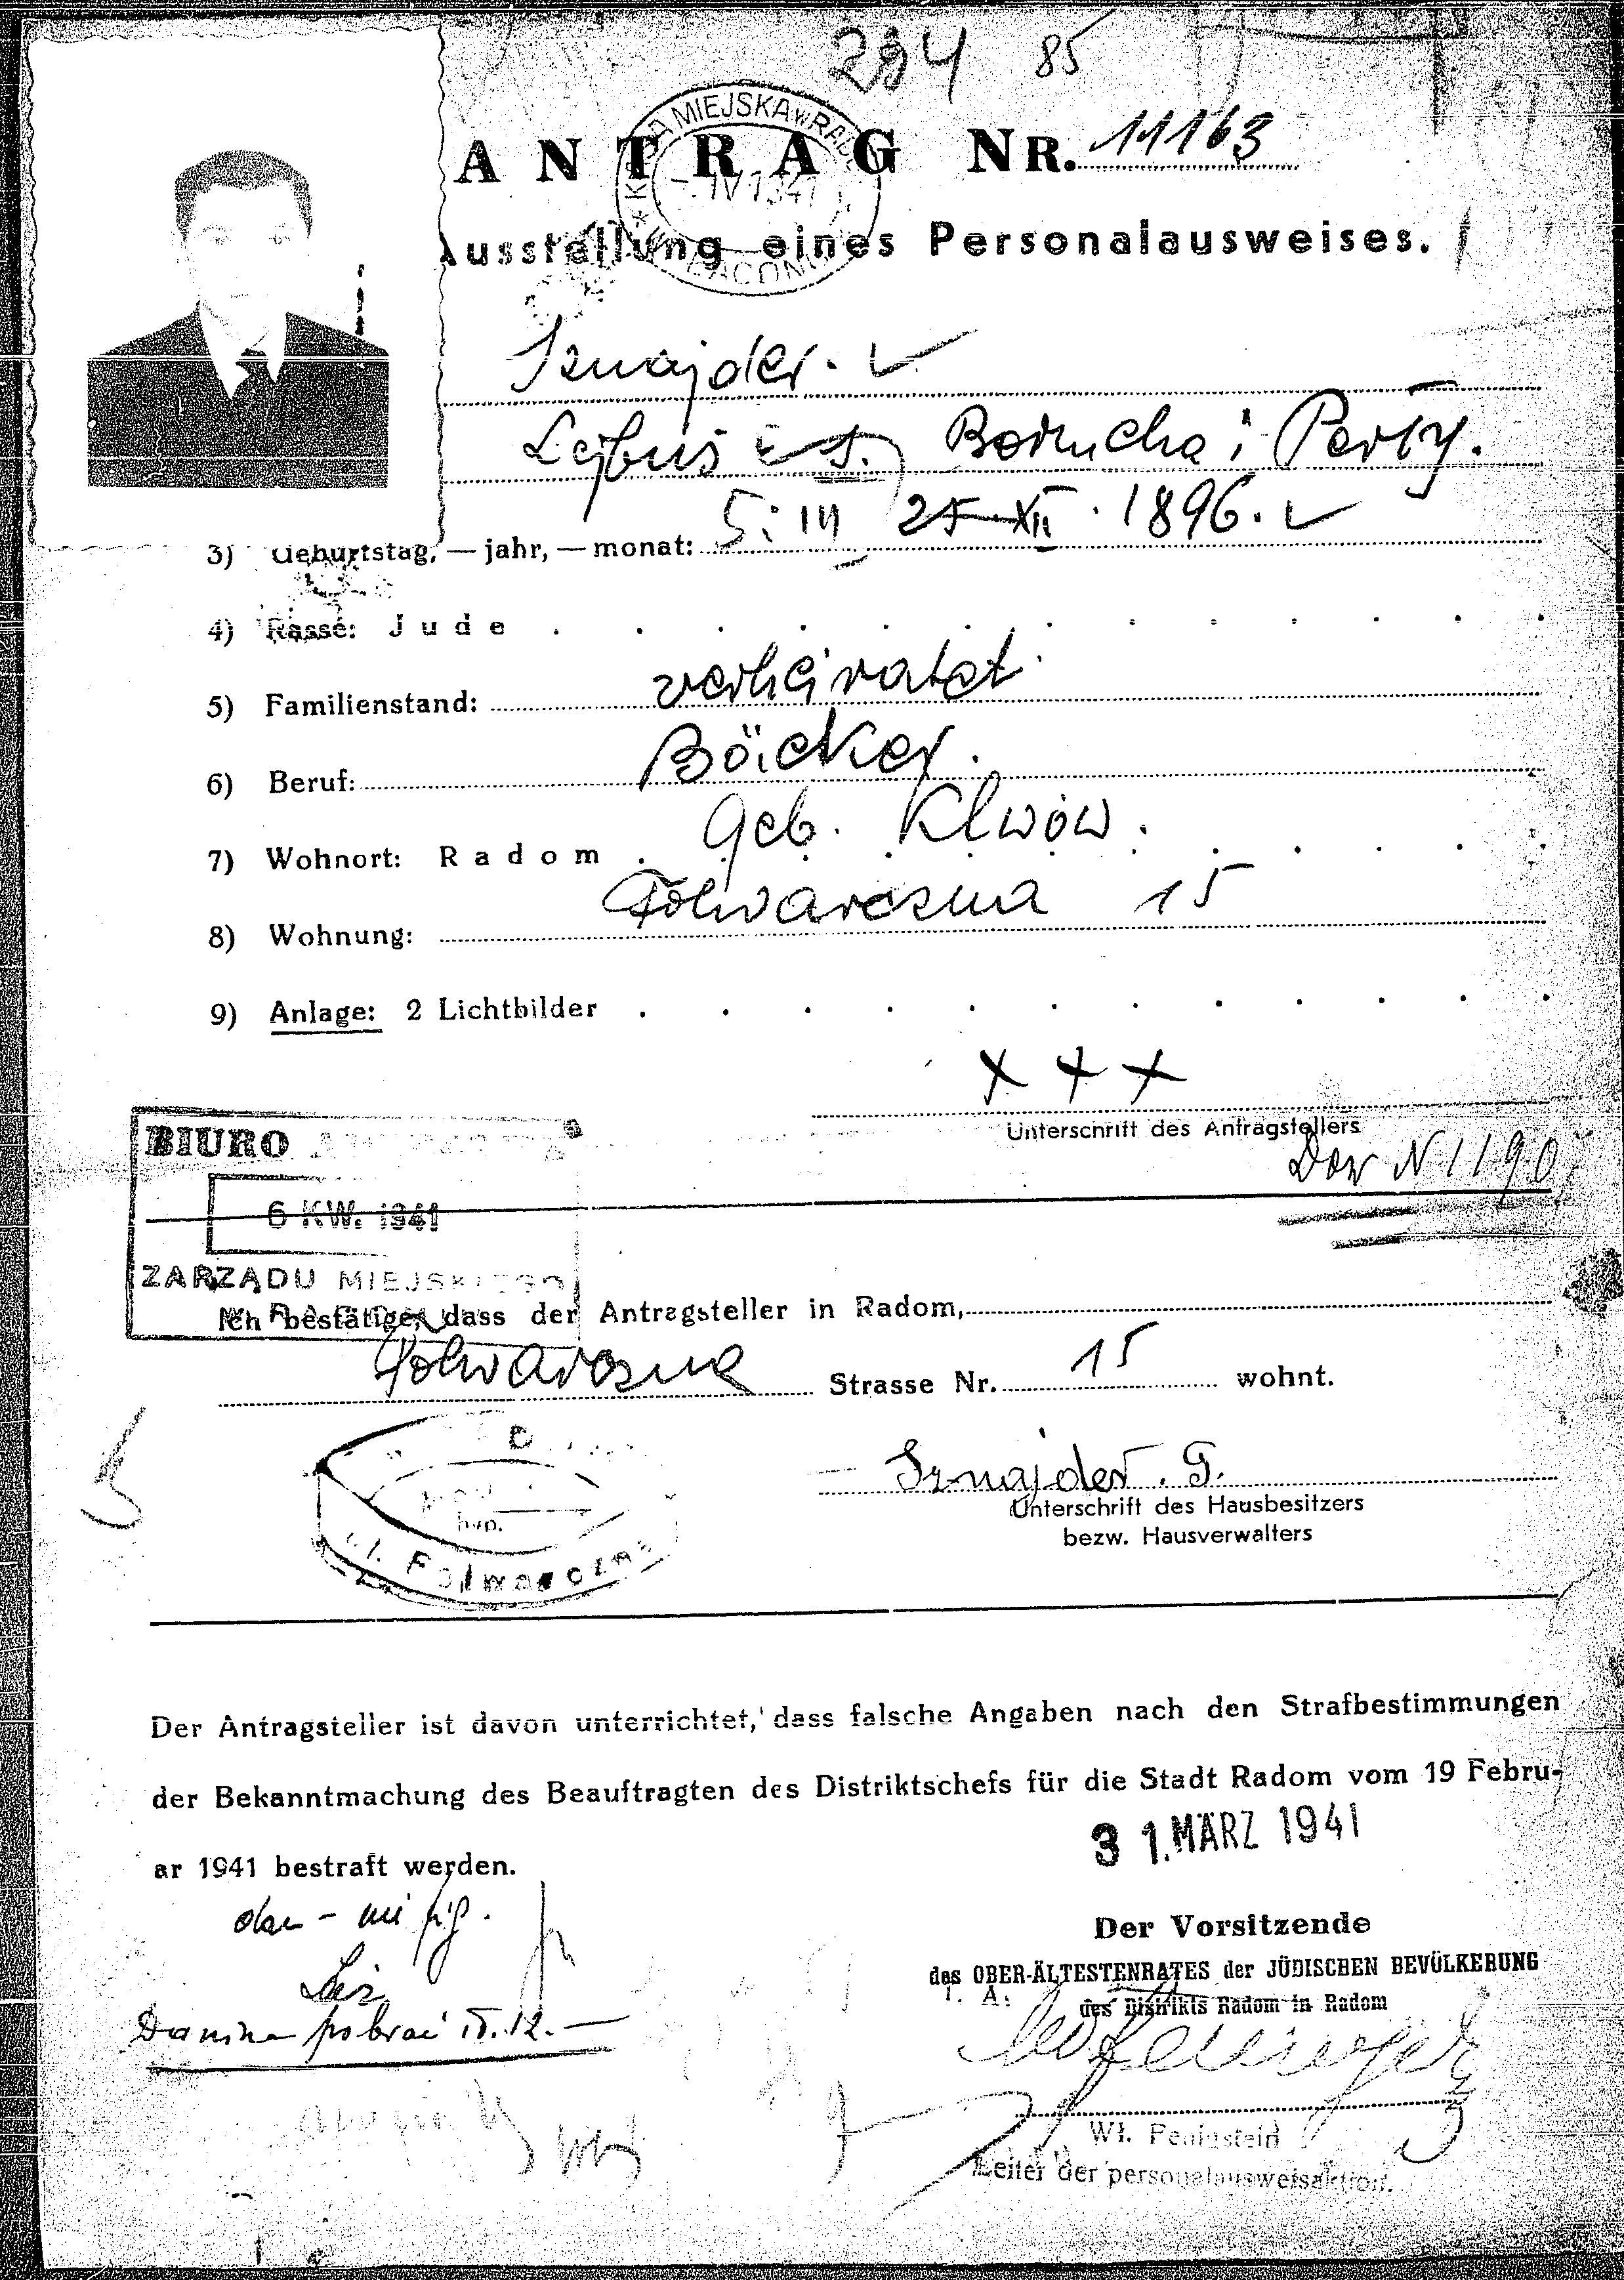 284 85
KASA MIEJSKA w RADOMIU
ANTRAG NR. 11163
Ausstellung eines Personalausweises.
Sznajder.
Lejbuś s. Borucha i Perły.
3) Geburtstag, — jahr, — monat: 5. III 25. XII. 1896.
4) Rasse: Jude
5) Familienstand: verheiratet
6) Beruf: Bäcker.
7) Wohnort: Radom. geb. Klwów.
8) Wohnung: Folwarczna 15
9) Anlage: 2 Lichtbilder
X X X
Unterschrift des Antragstellers
Dow N 1190
BIURO
6 KW. 1941
ZARZĄDU MIEJSKIEGO
Ich bestätige, dass der Antragsteller in Radom,
Folwarczna Strasse Nr. 15 wohnt.
Sznajder. G.
Unterschrift des Hausbesitzers
bezw. Hausverwalters
hyp.
ul. Folwarczna
Der Antragsteller ist davon unterrichtet, dass falsche Angaben nach den Strafbestimmungen
der Bekanntmachung des Beauftragten des Distriktschefs für die Stadt Radom vom 19 Febru-
ar 1941 bestraft werden.
31. MÄRZ 1941
Der Vorsitzende
des OBER-ÄLTESTENRATES der JÜDISCHEN BEVÖLKERUNG
I. A. des Distrikts Radom in Radom
Danina pobrać 12.—
Wł. Fenigstein
Leiter der personalausweisaktion.